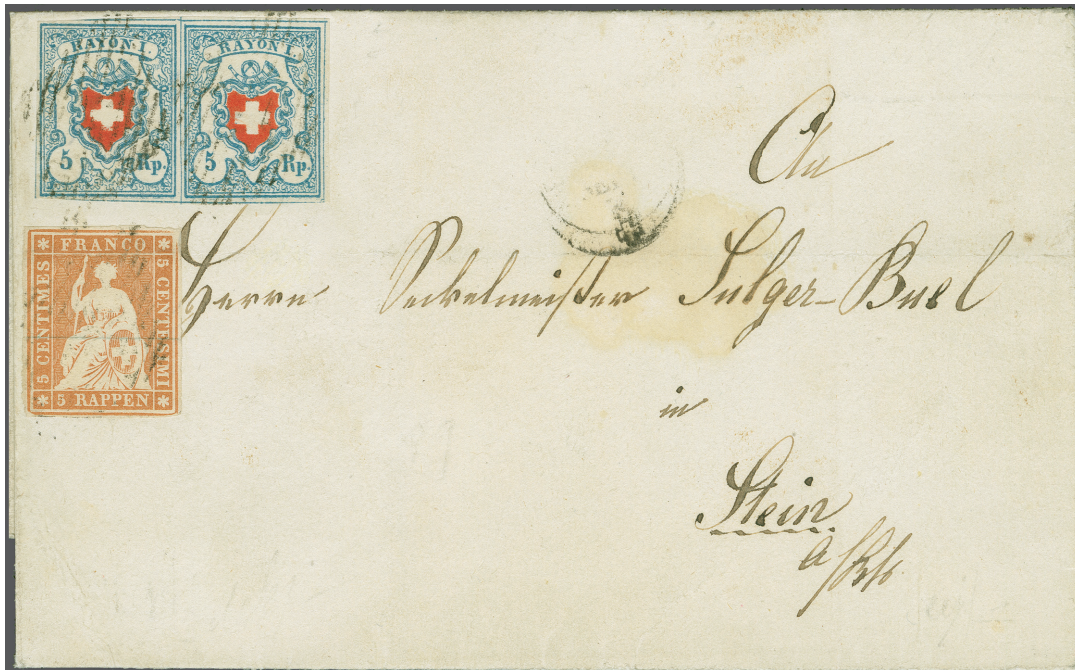 RAYON I. RAYON I.
5 Rp. 5 Rp.
FRANCO
5 CENTIMES
5 CENTESIMI
5 RAPPEN
An
Herrn Seckelmeister Sulger-Buel
in
Stein
a/Rh